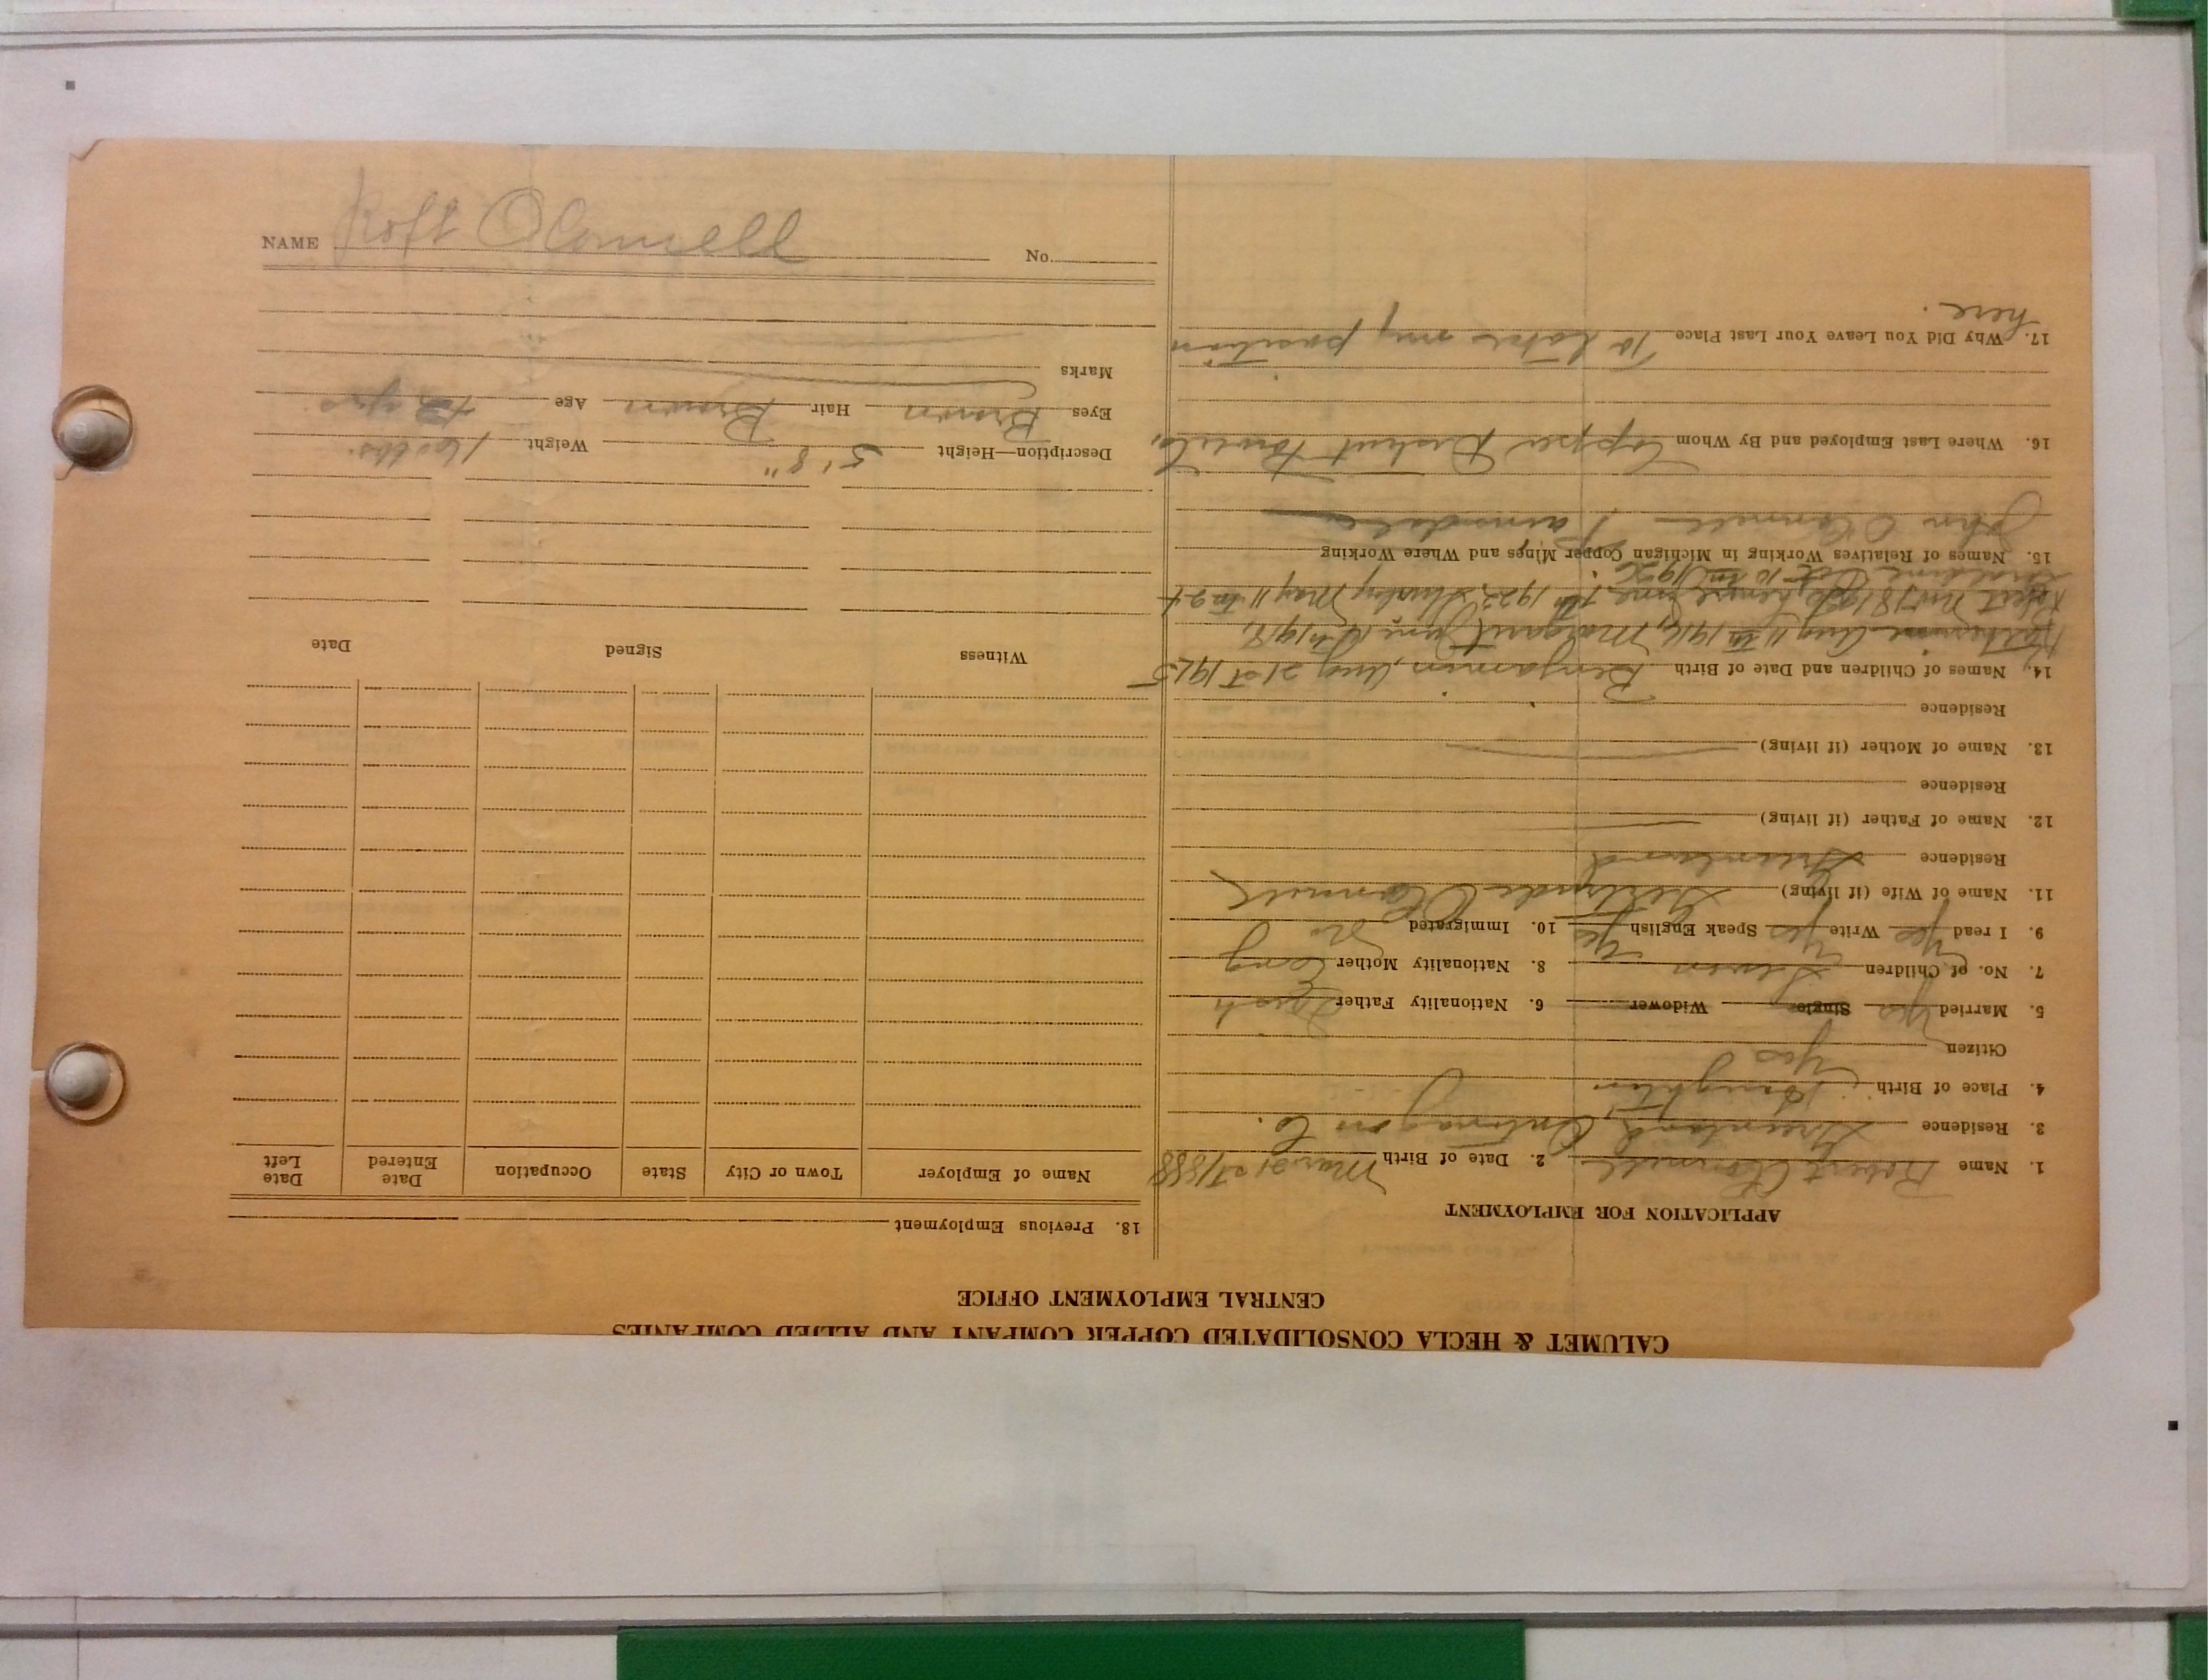 CALUMET & HECLA CONSOLIDATED COPPER COMPANY AND ALLIED COMPANIES
CENTRAL EMPLOYMENT OFFICE
APPLICATION FOR EMPLOYMENT
1. Name Robert OConnell 2. Date of Birth Mar 21 st 1888
3. Residence Greenland, Ontonagon Co.
4. Place of Birth Houghton
Citizen Yes
5. Married Yes Single Widower 6. Nationality Father Irish
7. No. of Children Seven 8. Nationality Mother Eng
9. I read Yes Write Yes Speak English Yes 10. Immigrated No
11. Name of Wife (if living) Gertrude OConnell
Residence Greenland
12. Name of Father (if living)
Residence
13. Name of Mother (if living)
Residence
14. Names of Children and Date of Birth Benjamin, Aug 21 st 1915
Katherine Aug 11 th 1916, Margaret June 16 th 1918,
Robert Nov 18 June 7 th 1922 Shirley May 11 th 24
Oct 10 th 1926
15. Names of Relatives Working in Michigan Copper Mines and Where Working
John OConnell
16. Where Last Employed and By Whom Copper District Power Co,
17. Why Did You Leave Your Last Place To take my position
here.
18. Previous Employment
Name of Employer Town or City State Occupation Date Entered Date Left
Witness Signed Date
Description—Height 5' 8" Weight 160 lbs.
Eyes Brown Hair Brown Age yrs
Marks
NAME Robt OConnell No.